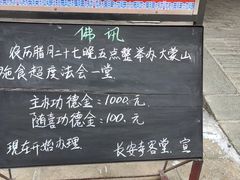 佛讯
农历腊月二十七晚五点整举办大蒙山
施食超度法会一堂.
主办功德金:1000.元.
随喜功德金:100.元.
现在开始办理
长安寺客堂.宣